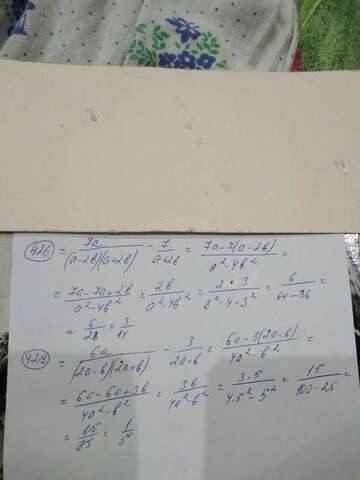 426 = 7a / (a-2b)(a+2b) - 7 / a+2b = 7a-7(a-2b) / a²-4b² =
= 7a-7a+2b / a²-4b² = 2b / a²-4b² = 2·3 / 8²-4·3² = 6 / 64-36 =
= 6/28 = 3/14
427 = 6a / (2a-b)(2a+b) - 3 / 2a+b = 6a-3(2a-b) / 4a²-b² =
= 6a-6a+3b / 4a²-b² = 3b / 4a²-b² = 3·5 / 4·5²-5² = 15 / 100-25 =
= 15/75 = 1/5